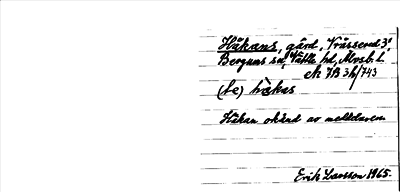 Håkans, gård, Kråssered 3¹,
Bergums sn, Vättle hd, Älvsb. l.
ek JB 3h/743
(te) håkas
Håkan okänd av meddelaren
Erik Larsson 1965.